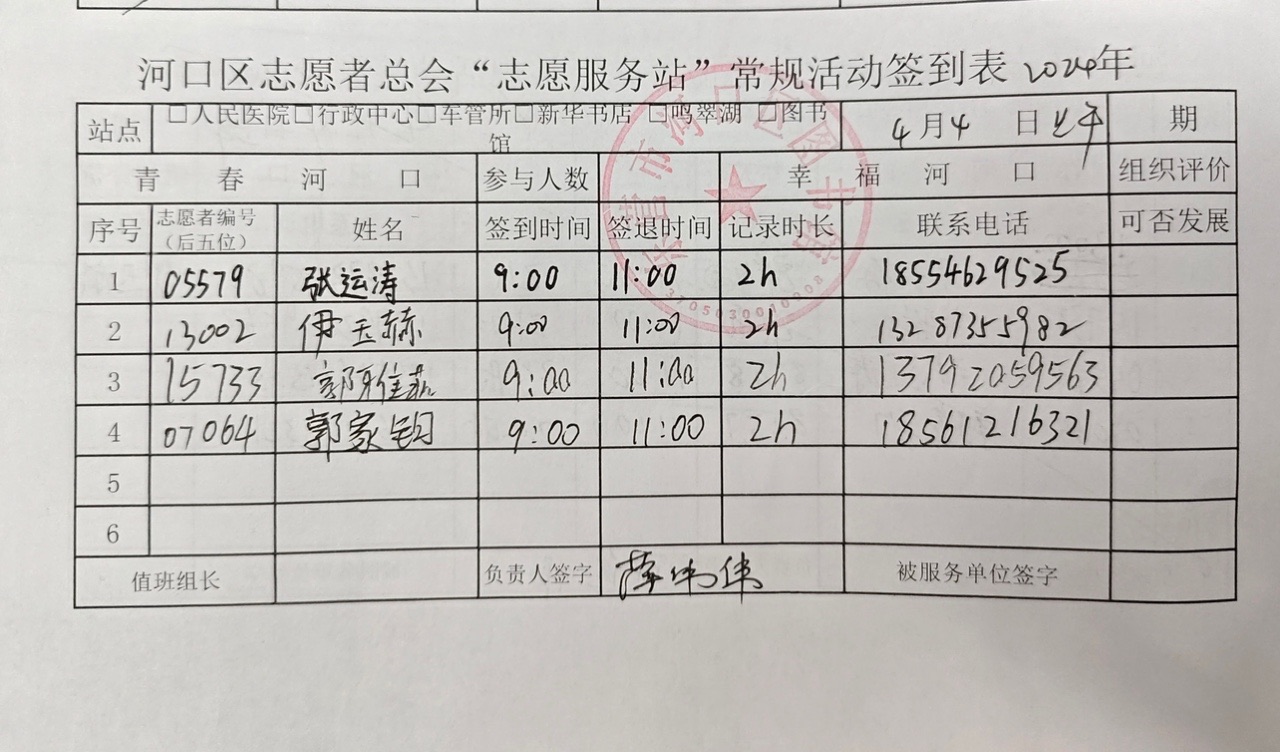 河口区志愿者总会“志愿服务站”常规活动签到表 2024年
站点 □人民医院□行政中心□车管所□新华书店 □鸣翠湖 □图书馆 4月4 日上午 期
青 春 河 口 参与人数 幸 福 河 口 组织评价
序号 志愿者编号（后五位） 姓名 签到时间 签退时间 记录时长 联系电话 可否发展
1 05579 张运涛 9:00 11:00 2h 18554629525
2 13002 伊玉赫 9:00 11:00 2h 13287355982
3 15733 郭雅佳 9:00 11:00 2h 13792059563
4 07064 郭家钥 9:00 11:00 2h 18561216321
5
6
值班组长 负责人签字 薛伟伟 被服务单位签字
东营市河口区图书馆